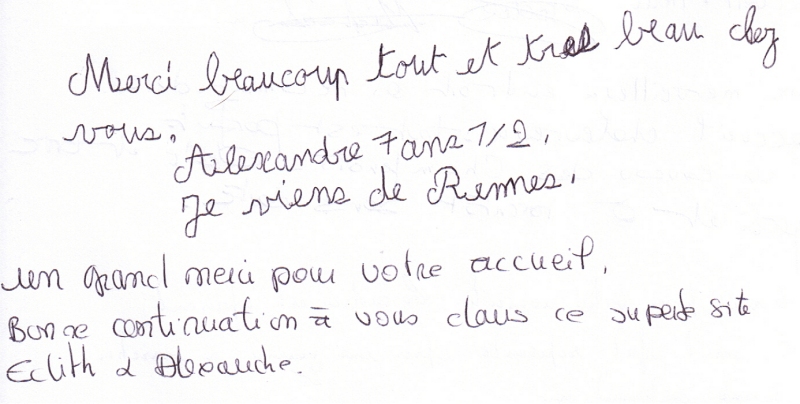 Merci beaucoup tout et tres beau chez
vous.
Alexandre 7 ans 1/2.
Je viens de Rennes.
un grand merci pour votre accueil.
Bonne continuation à vous dans ce superbe site
Edith & Alexandre.